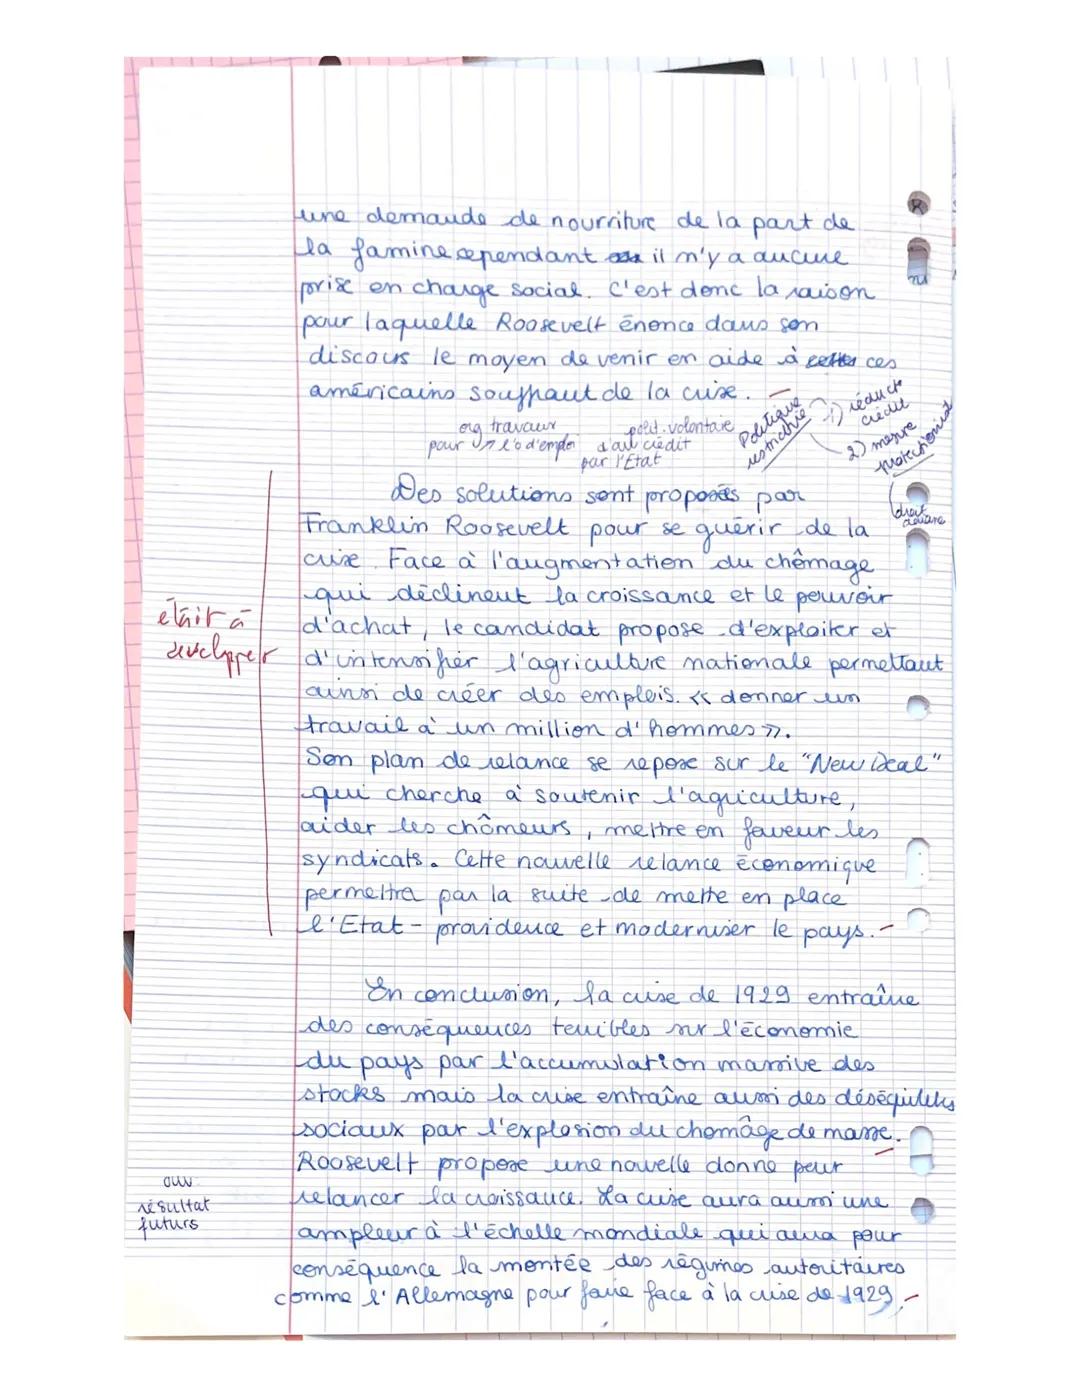 une demande de nourriture de la part de
la famine cependant il n'y a aucune
prise en charge social. C'est donc la raison
pour laquelle Roosevelt énonce dans son
discours le moyen de venir en aide à cettes ces
américains souffrant de la crise.
org travaux
pour l'o d'emploi
polit. volontaire
d'au crédit
par l'Etat
Politique
restrictive
1) réduct
crédit
2) mesure
protectionnist
(droit
douane
Des solutions sont proposés par
Franklin Roosevelt pour se guérir de la
crise. Face à l'augmentation du chômage
qui déclinent la croissance et le pouvoir
d'achat, le candidat propose d'exploiter et
d'intensifier l'agriculture nationale permettant
ainsi de créer des emplois. « donner un
travail à un million d'hommes ».
Son plan de relance se repose sur le "New Deal"
qui cherche à soutenir l'agriculture,
aider les chômeurs, mettre en faveur les
syndicats. Cette nouvelle relance économique
permettra par la suite de mette en place
l'Etat-providence et moderniser le pays.
était à
développer
En conclusion, la crise de 1929 entraîne
des conséquences terribles sur l'économie
du pays par l'accumulation massive des
stocks mais la crise entraîne aussi des déséquilibres
sociaux par l'explosion du chomâge de masse.
Roosevelt propose une nouvelle donne pour
relancer la croissance. La crise aura aussi une
ampleur à l'échelle mondiale qui aura pour
conséquence la montée des régimes autoritaires
comme l'Allemagne pour faire face à la crise de 1929.
ouv
résultat
futurs